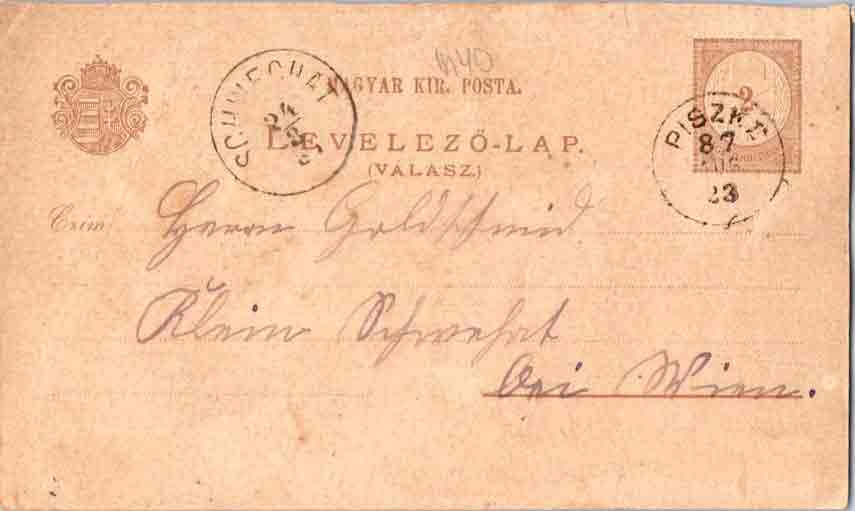 MAGYAR KIR. POSTA.
LEVELEZŐ-LAP.
(VÁLASZ.)
2
SCHWECHAT
24
8
PISZKE
87
AUG
23
Czím:
Herrn Goldschmid
Klein Schwehat
bei Wien.